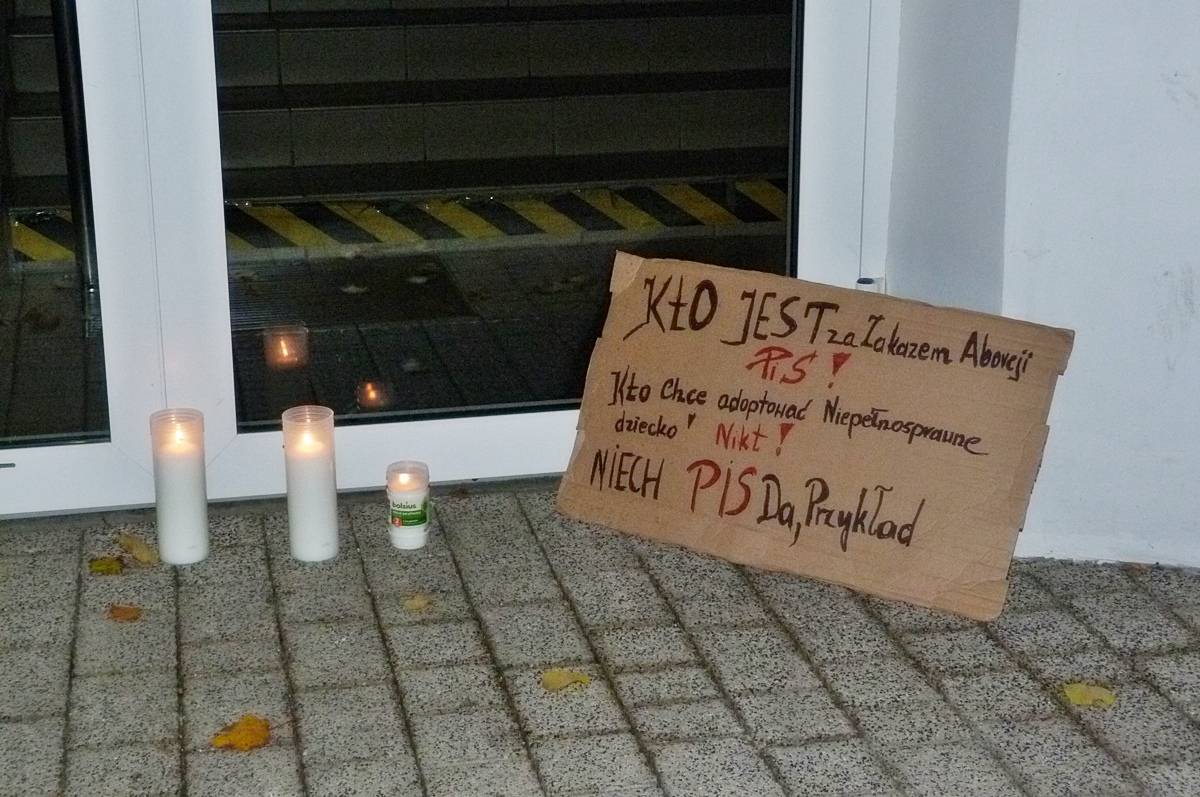 bolsius
KŁO JEST za Zakazem Aborcji
PiS !
Kło Chce adoptować Niepełnosprawne
dziecko' Nikt!
NIECH PiS Da, Przykład